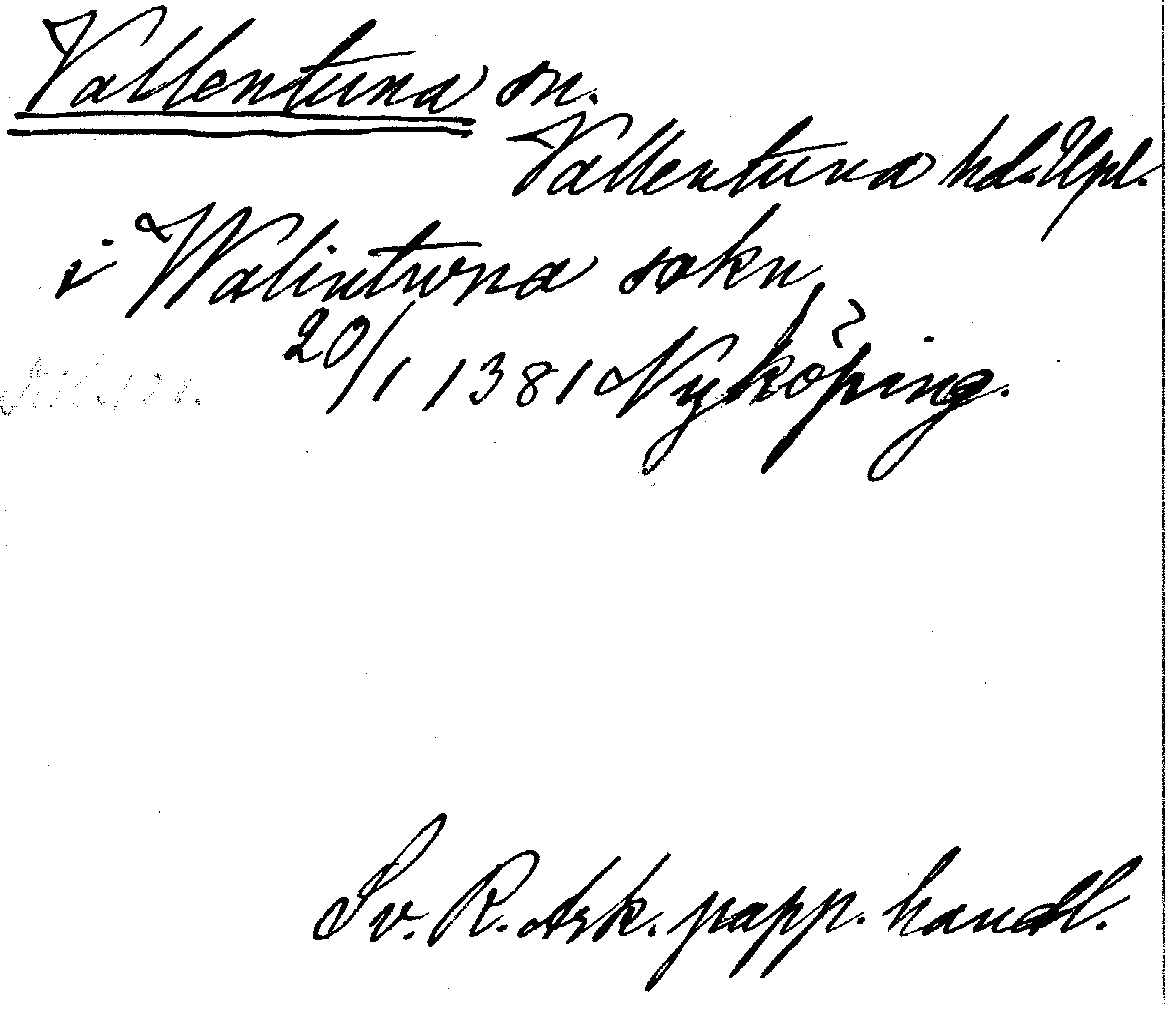 Vallentuna sn.
Vallentuna hd. Upl.
i Walintwna sokn
20/1 1381 Nyköping.
Sv. R. Ark. papp. handl.